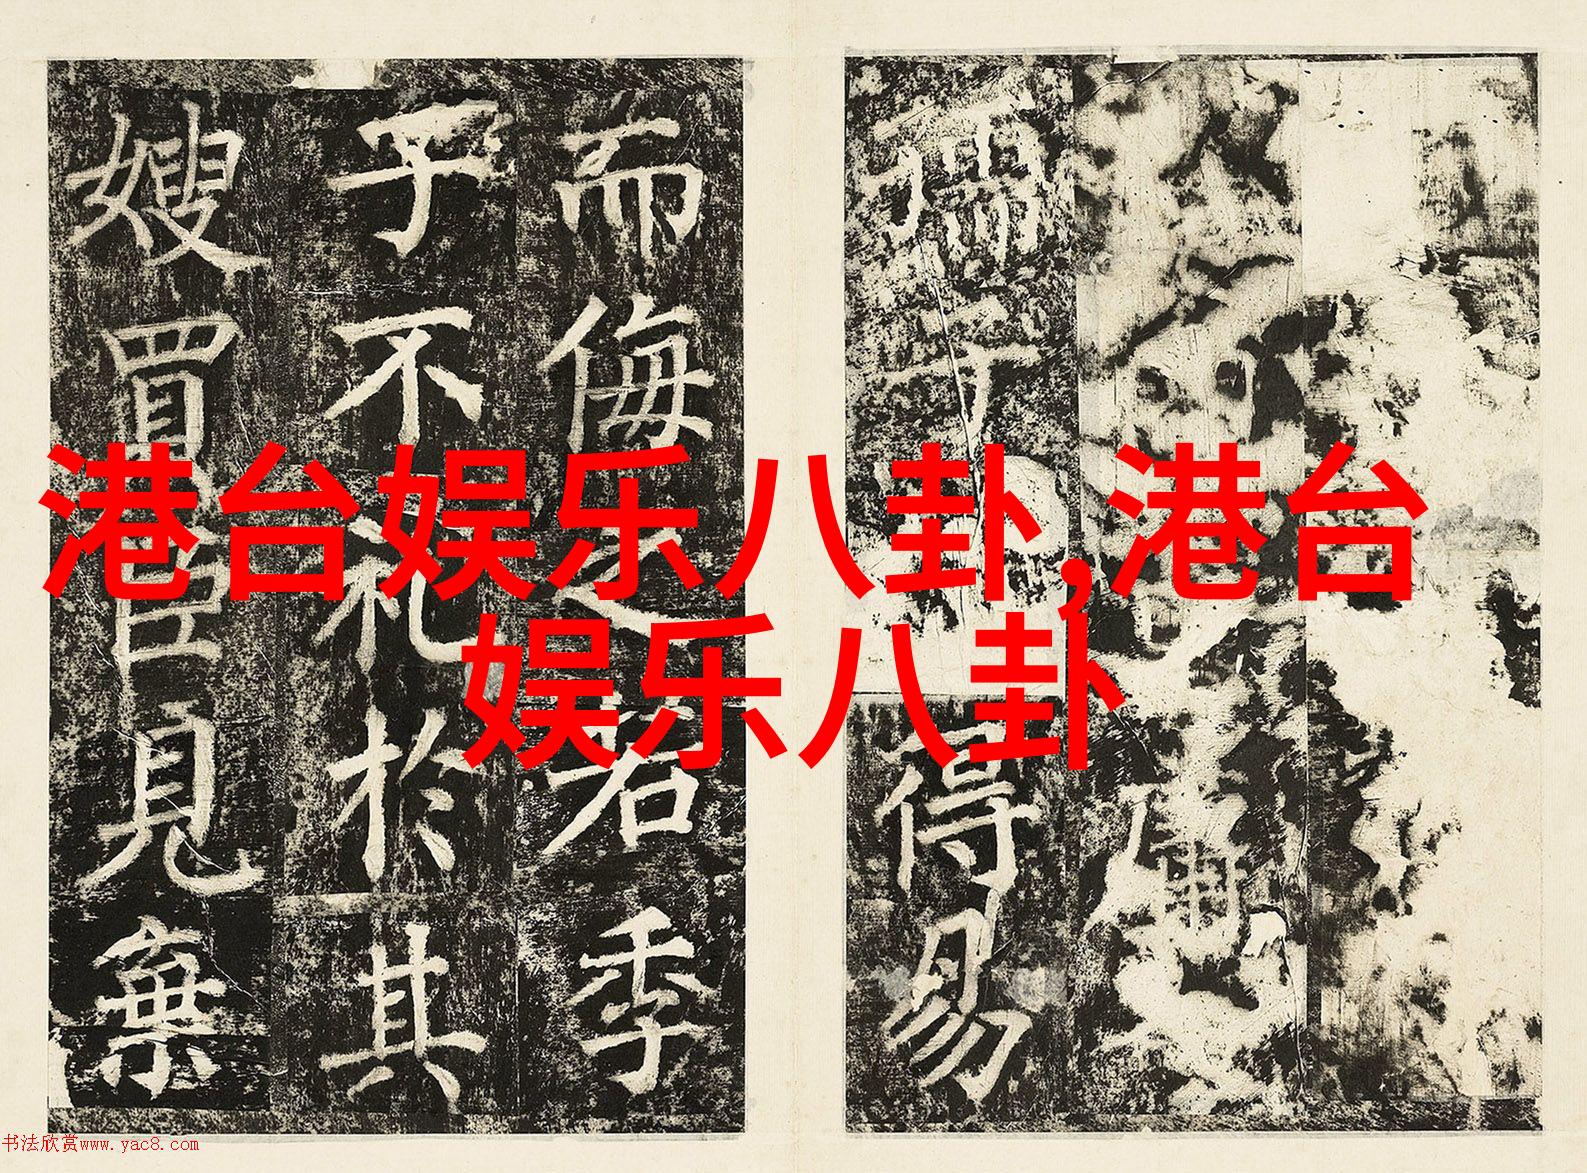 港台娱乐八卦,港台
娱乐八卦
孺子
得易
而侮之若季
子不礼於其
嫂買臣見棄
书法欣赏www.yac8.com